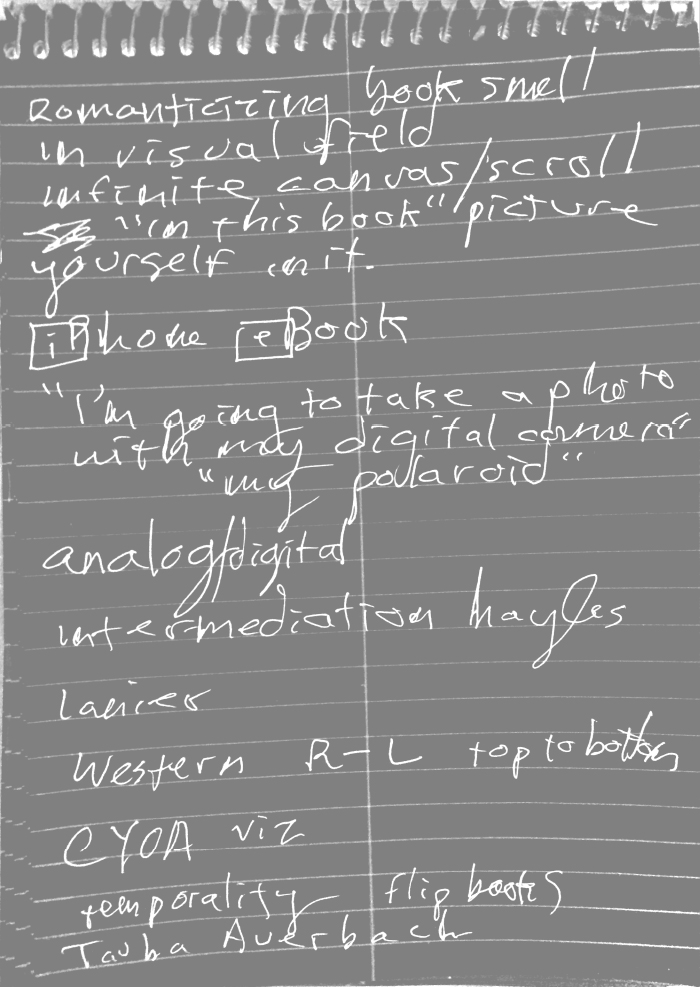 Romanticizing book smell
in visual field
infinite canvas/scroll
"in this book" picture
yourself in it.
iPhone eBook
"I'm going to take a photo
with my digital camera"
"my polaroid"
analog/digital
intermediation hayles
Lanier
Western R-L top to bottom
CYOA viz
temporality flip books
Tauba Auerbach